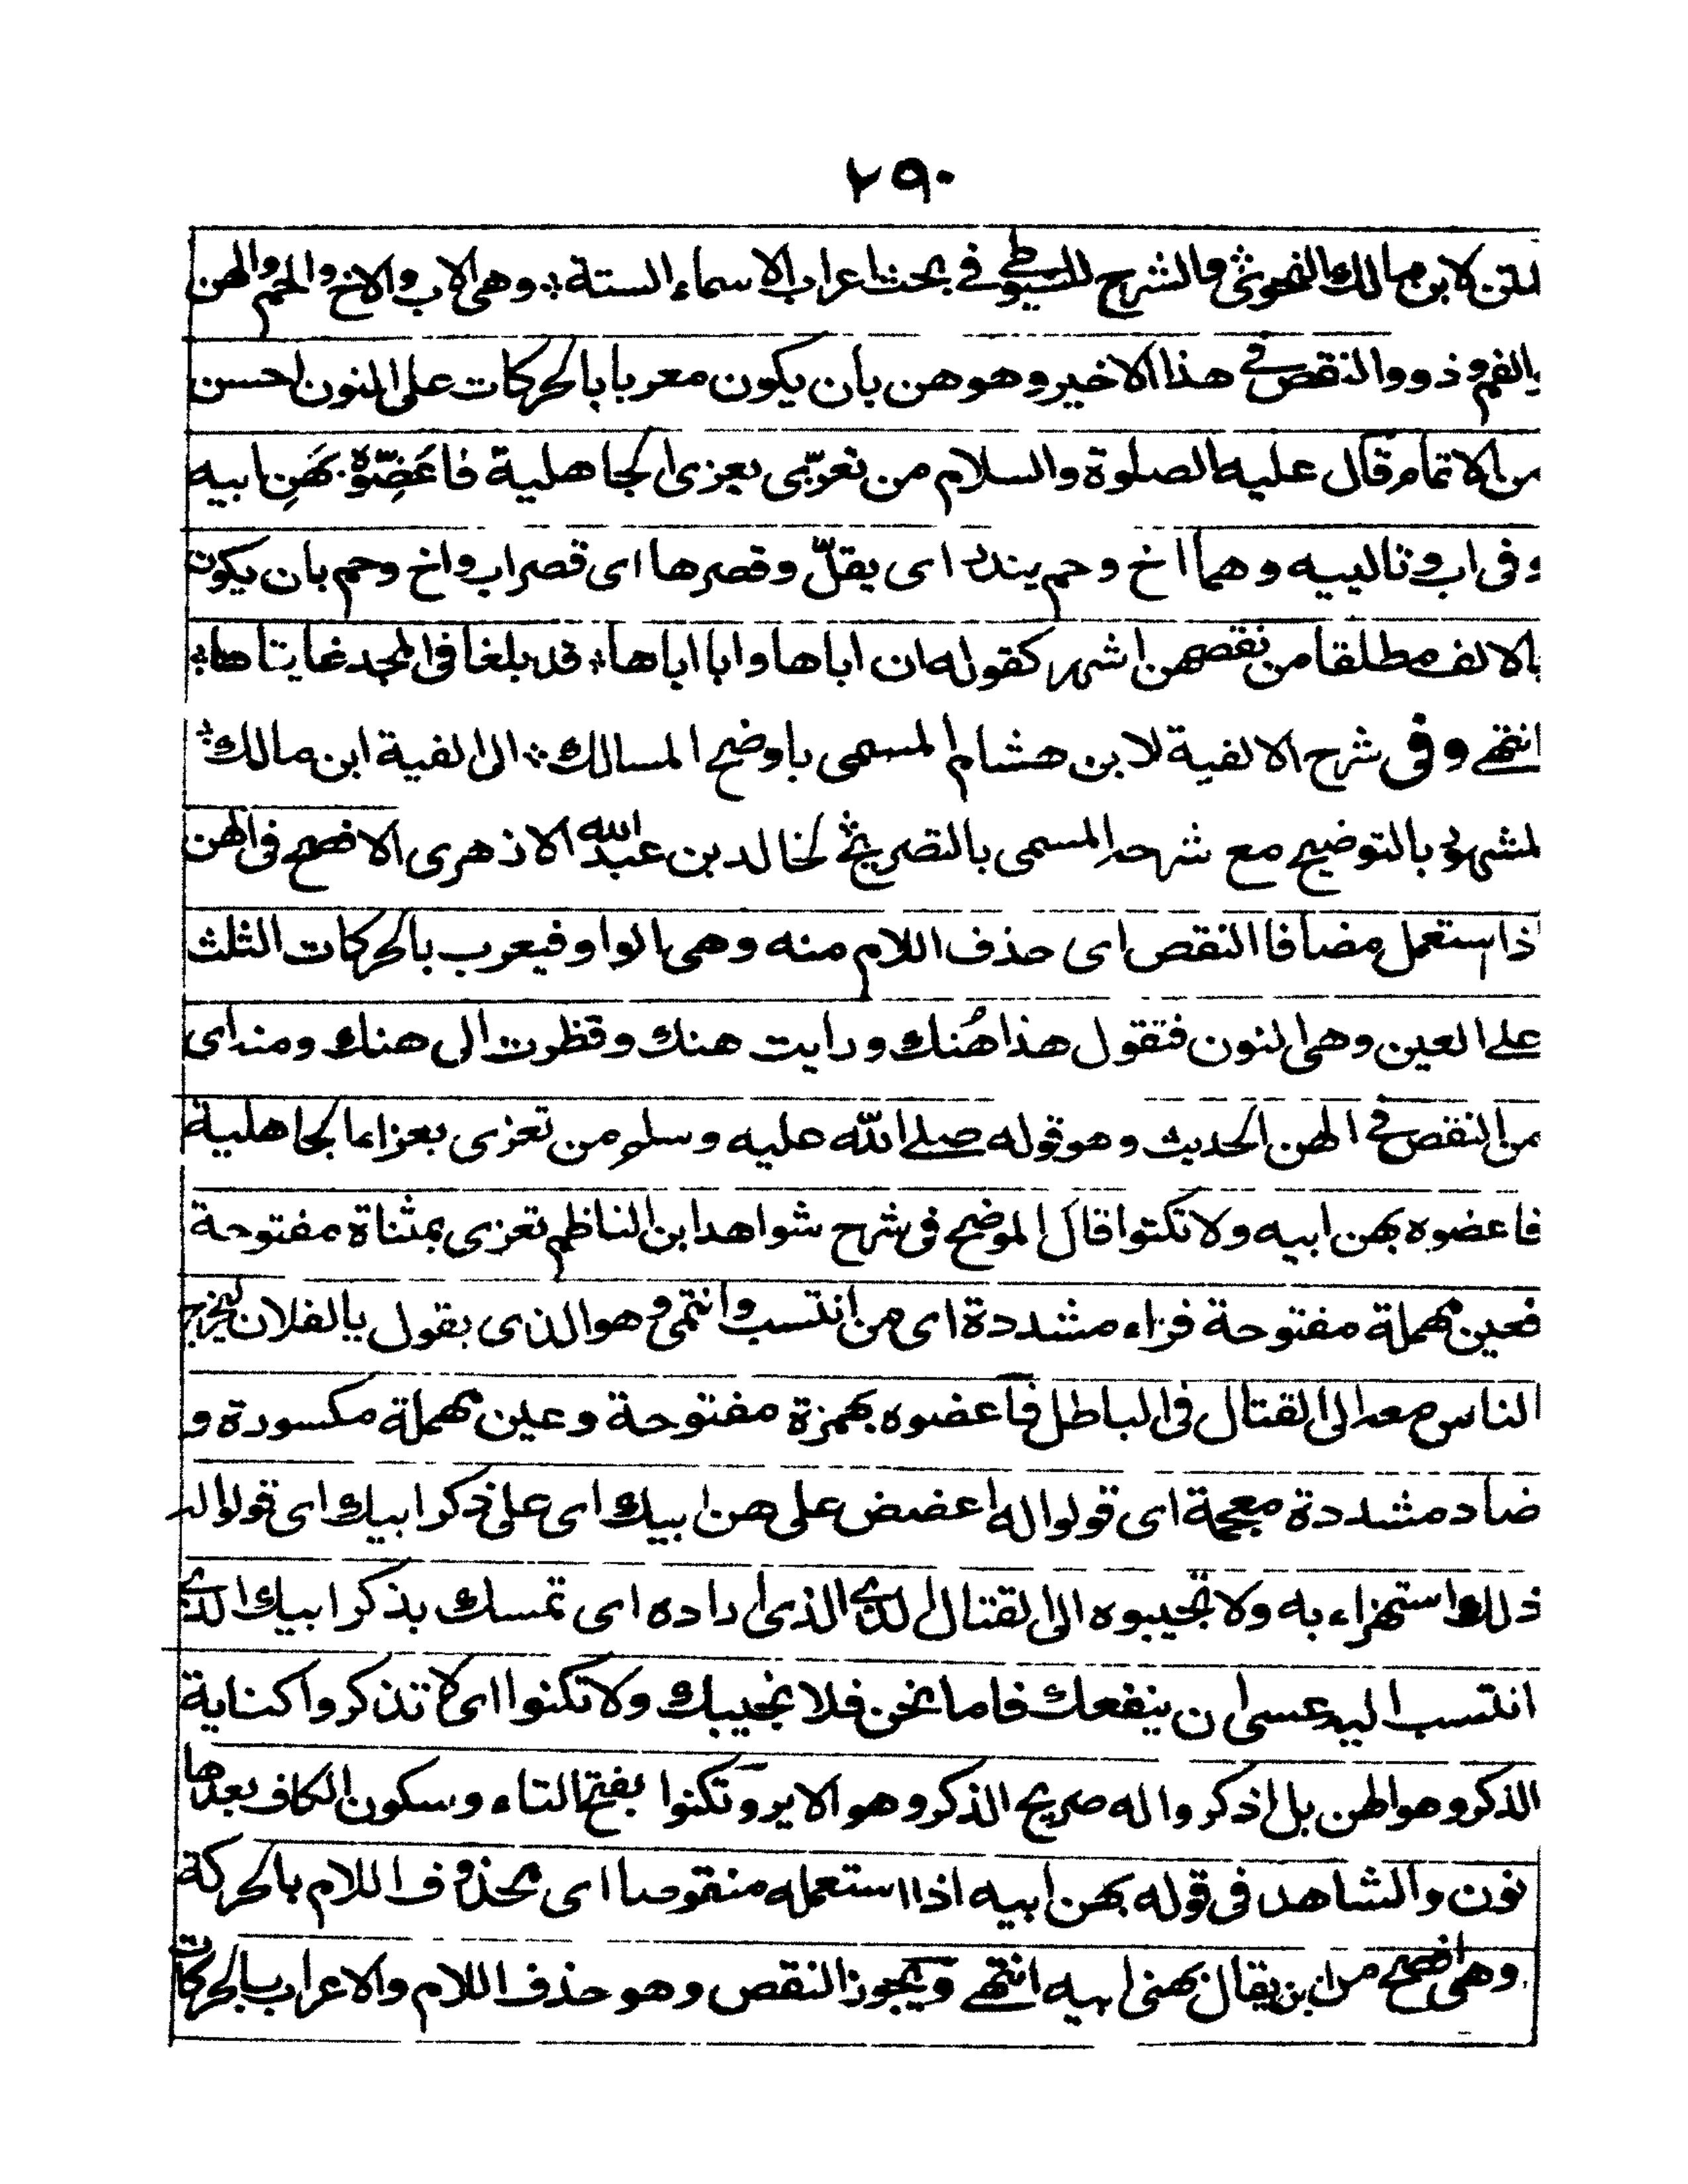 ٢٩٠
لتن لابن مالك النحوى والشرح للسيوطى فى بحث اعراب الاسماء الستة وهى الاب والاخ والحم والهن
والفم وذو والنقص فى هذا الاخير وهو هن بان يكون معربا بالحركات على النون احسن
من الاتمام قال عليه الصلوة والسلام من تعزّى بعزى الجاهلية فاَعَضِّوهُ بهَنِ ابيه
وفى اب وتالييه وهما اخ وحم يندر اى يقلّ وقصرها اى قصر اب واخ وحم بان يكون
بالالف مطلقا من نقصهن اشهر كقوله ان اباها وابا اباها قد بلغا فى المجد غايتاها
انتهى وفى شرح الالفية لابن هشام المسمى باوضح المسالك الى الفية ابن مالك
لمشهور بالتوضيح مع شرحه المسمى بالتصريح لخالد بن عبد الله الازهرى الافصح فى الهن
ذا استعمل مضافا النقص اى حذف اللام منه وهى الواو فيعرب بالحركات الثلث
على العين وهى النون فتقول هذا هُنك ورايت هنك ونظرت الى هنك ومنه اى
من النقص فى الهن الحديث وهو قوله صلى الله عليه وسلم من تعزى بعزاء الجاهلية
فاعضوه بهن ابيه ولا تكنوا قال الموضح فى شرح شواهد ابن الناظم تعزى بمثناة مفتوحة
فعين مهملة مفتوحة فزاء مشددة اى من انتسب وانتمى وهو الذى يقول يالفلان ليخرج
الناس معه الى القتال فى الباطل فاعضوه بهمزة مفتوحة وعين مهملة مكسورة و
ضاد مشددة معجمة اى قولوا له اعضض على هن ابيك اى على ذكر ابيك اى قولوا له
ذلك استهزاء به ولا تجيبوه الى القتال الذى اراده اى تمسك بذكر ابيك الذى
انتسب اليه عسى ان ينفعك فاما نحن فلا نجيبك ولا تكنوا اى لا تذكروا كناية
الذكر وهو الهن بل اذكروا له صريح الذكر وهو الاير وتكنوا بفتح التاء وسكون الكاف بعدها
نون والشاهد فى قوله بهن ابيه اذا استعمله منقوصا اى محذوف اللام بالحركة
وهى افصح من ان يقال بهنى ابيه انتهى ويجوز النقص وهو حذف اللام والاعراب بالحركات